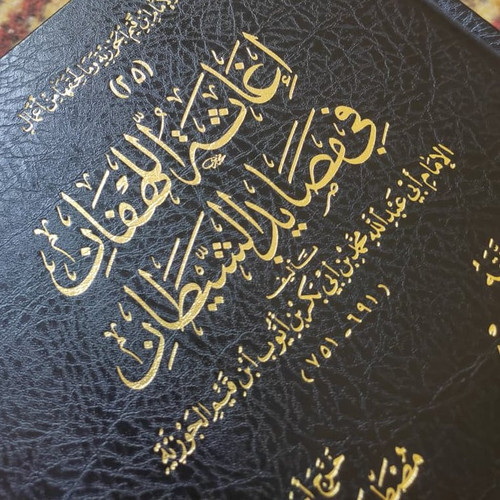 الإمام ابن قيم الجوزية وما لحقها من أعمال
(٢٥)
إغاثة اللهفان
في مصايد الشيطان
تأليف
الإمام أبي عبد الله محمد بن أبي بكر بن أيوب ابن قيم الجوزية
(٦٩١ - ٧٥١)